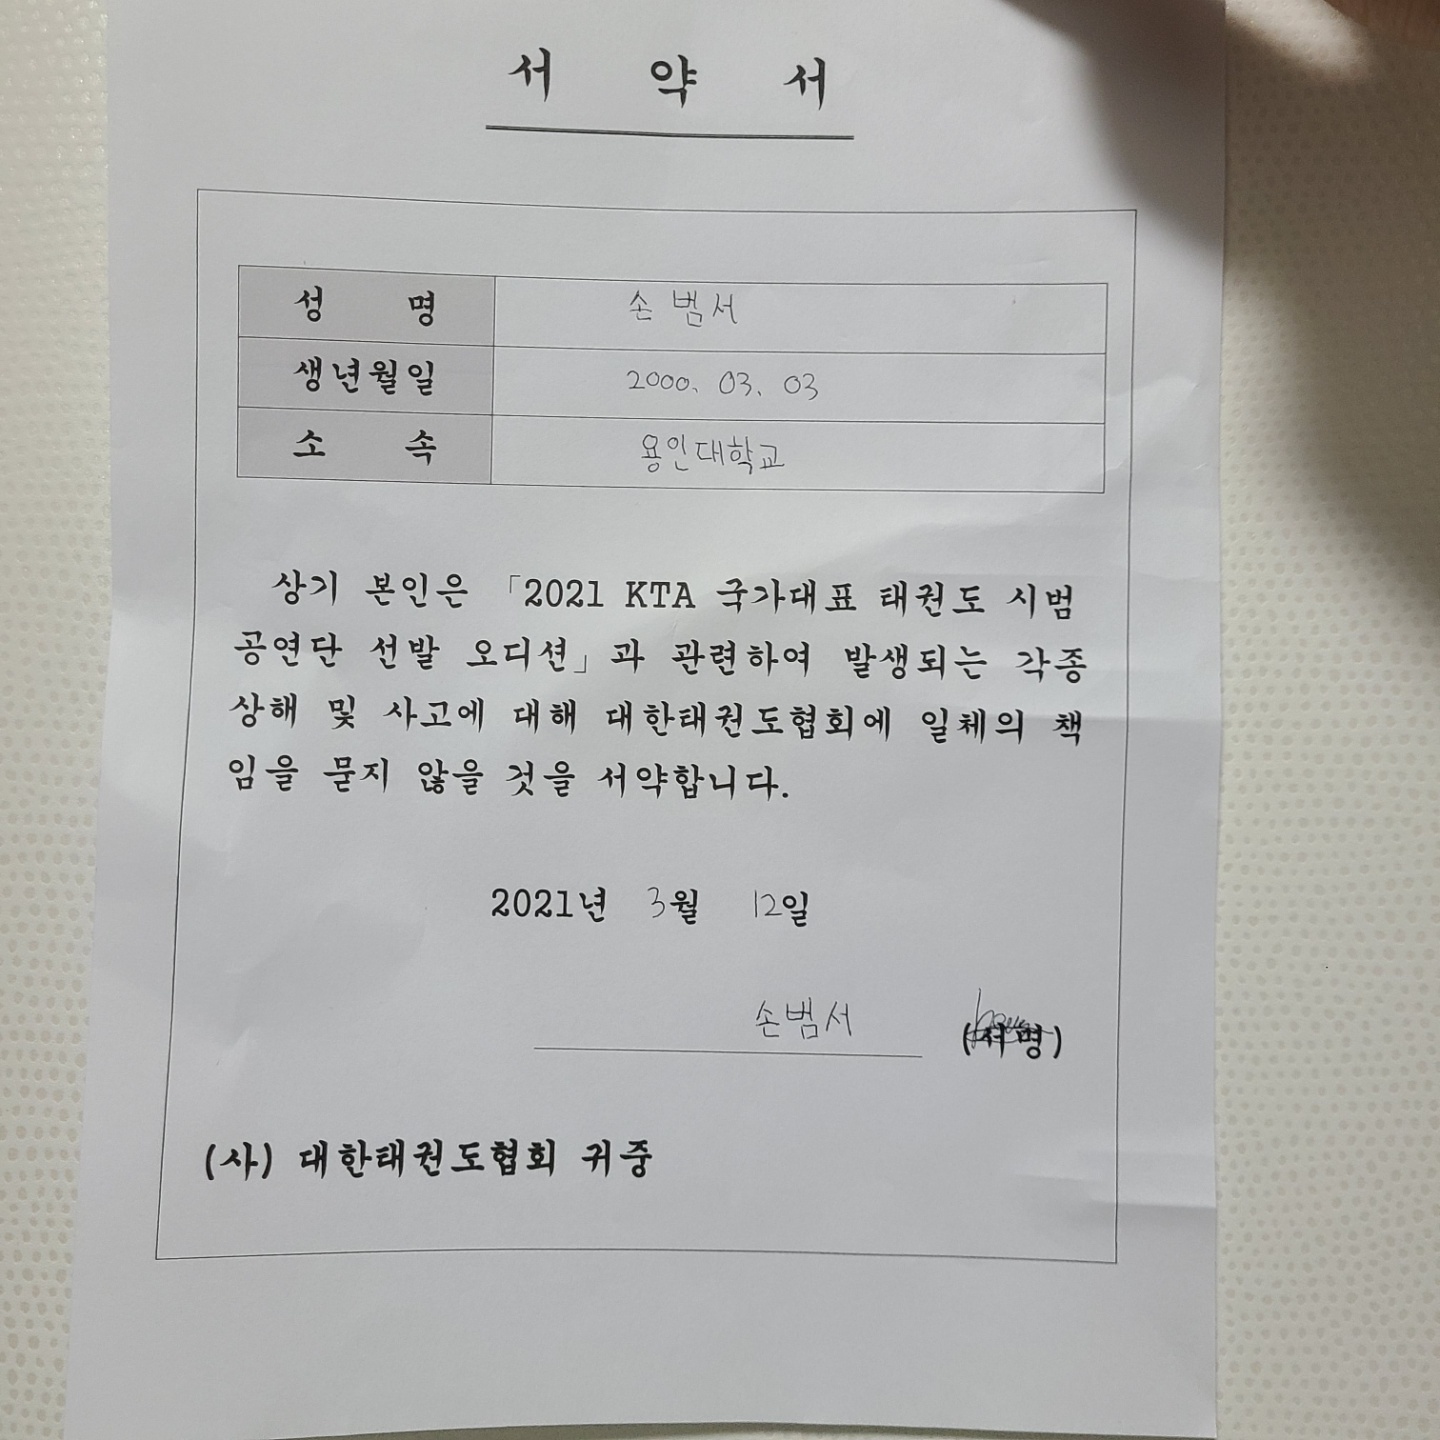 서 약 서
성 명 손범서
생년월일 2000. 03. 03
소 속 용인대학교
상기 본인은 「2021 KTA 국가대표 태권도 시범
공연단 선발 오디션」과 관련하여 발생되는 각종
상해 및 사고에 대해 대한태권도협회에 일체의 책
임을 묻지 않을 것을 서약합니다.
2021년 3월 12일
손범서 (서명)
(사) 대한태권도협회 귀중